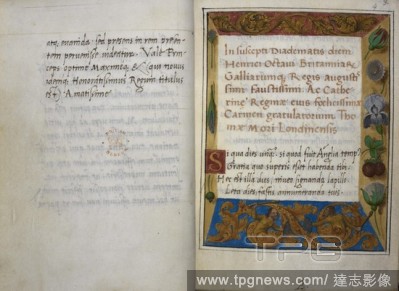 ate, exarata, sed presens in rem presen-
tem peruenisse uideatur. Vale Prin-
ceps optime Maxime, & (qui nouus
idemq; Honorificentissimus Regum titulus
est) Amatissime.
In suscepti Diadematis diem
Henrici Octaui Britanniarũ
Galliarumq; Regis auguste
simi faustissimi Ac Cathe
rine Regine eius fœlicissimæ
Carmen gratulatorium Tho
mæ Mori Londinensis
Si qua dies unquã, si quod fuit Anglia tempus
Gratia quo superis esset habenda tibi
Hec est illa dies, niueo signanda lapillo
Leta dies fastis annumeranda tuis
TPG
www.tpgnews.com/達志影像